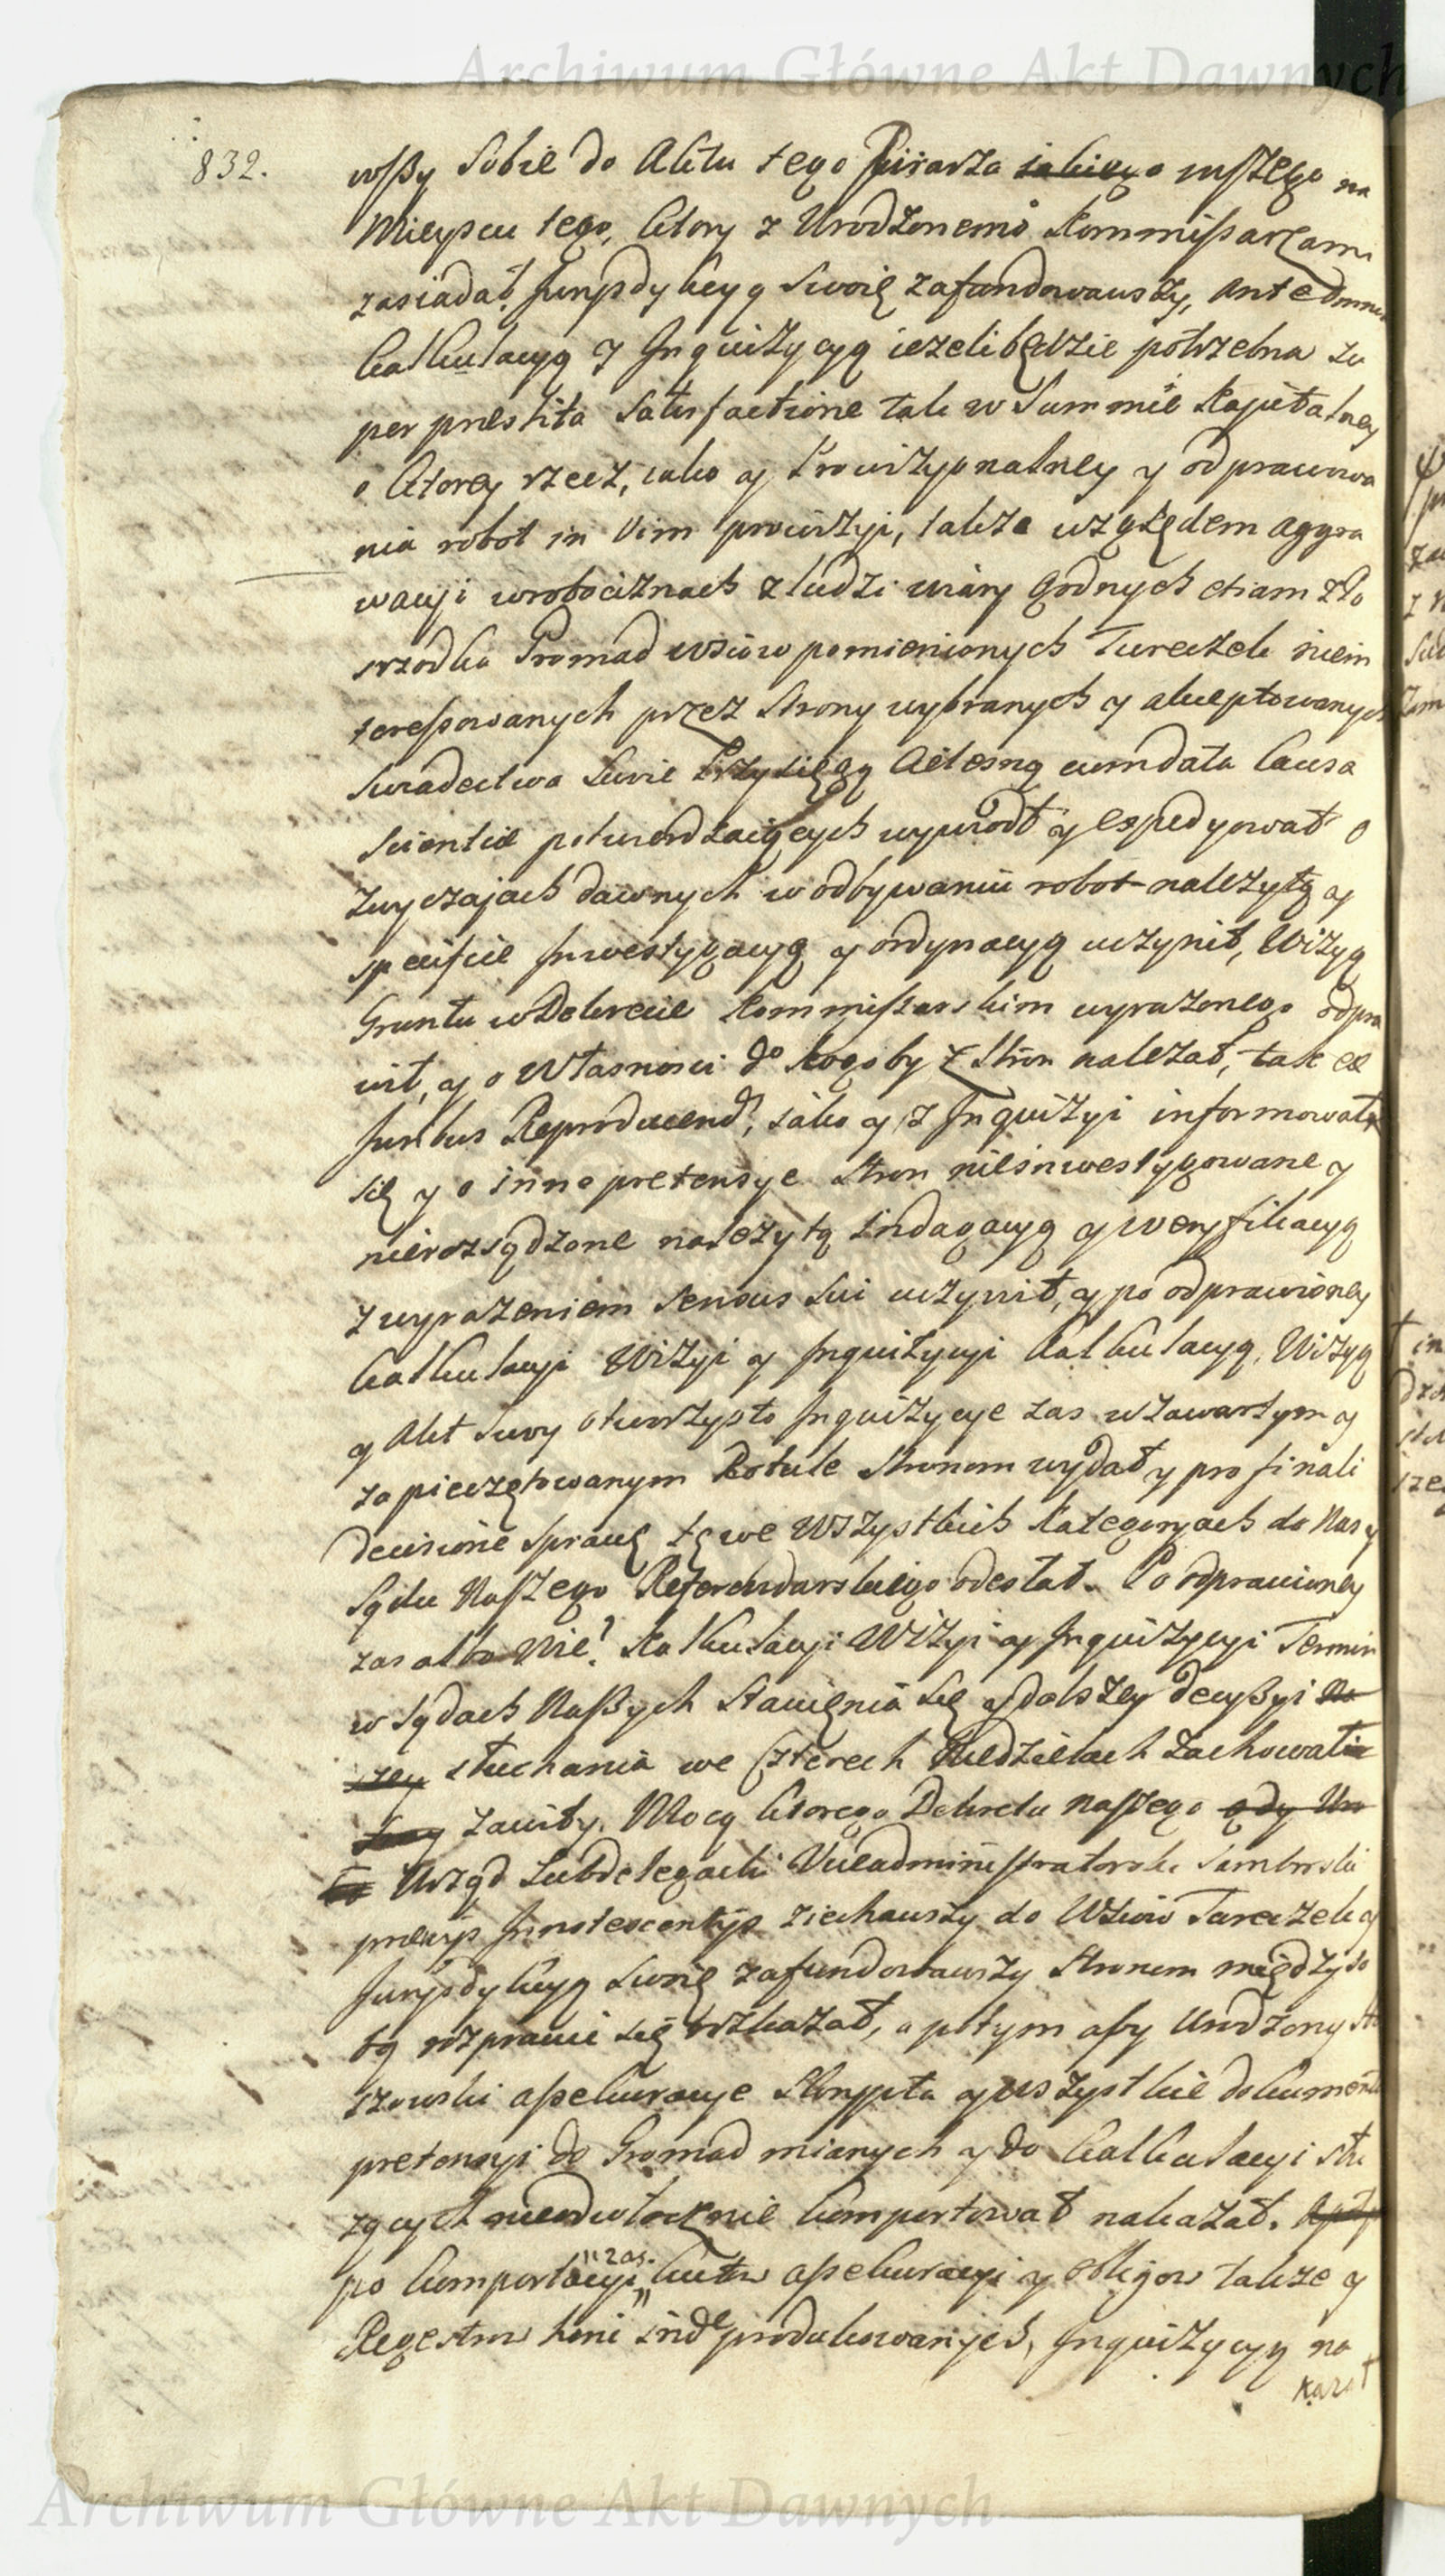 Archiwum Główne Akt Dawnych
832.
wszy Sobie do Aktu tego Pisarza inszego na
Mieyscu tego, ktory z Urodzonemi Kommissarzami
zasiadał, Jurysdykcyą Swoię zafundowawszy, ante omnia
kalkulacyą y Inquizycyą iezeli będzie potrzebna su
per præstita Satisfactione tak w Summie Kapitalney
o ktorey rzecz, iako y Prowizyonalney y odprawowa
nia robot in Vim prowizyi, takze względem aggra
wacyi w robociznach z ludzi wiary godnych etiam z Po
srzodka Gromad wsiow pomienionych Tureczek niein
teressowanych przez Strony wybranych y akceptowanych
Swiadectwa Swie Przysięgą Cielesną cum data Causa
Scientiæ potwierdzaiących wywiodł y expedyował o
Zwyczajach dawnych w odbywaniu robot należytą y
specifice Inwestygacyą y ordynacyą uczynił, Wizyą
Gruntu w Dekrecie Kommissarskim wyrażonego odpra
wił, y o Własnosci do kogoby z Stron nalezał, tak ex
Juribus Reproducend, iako y z Inquizyi informował
się y o inne pretensye Stron nieinwestygowane y
nierozsądzone nalezytą indagacyą y weryfikacyą
z wyrazeniem Sensus Sui uczynił, y po odprawioney
kalkulacyi Wizyi y Inquizycyi Kalkulacyą, Wizyą
y Akt Swoy otworzysto Inquizycye zas w zawartym y
zapieczętowanym Rotule Stronom wydał y pro finali
decisione sprawę tę we Wszystkich Kategoryach do Nas y
Sądu Naszego Referendarskiego odesłał. Po odprawioney
zas albo Nie? Kalkulacyi Wizyi y Inquizycyi Termin
w Sądach Naszych Stawienia się y dalszey decyzyi
słuchania we Czterech Niedzielach zachował
zawity. Mocą ktorego Dekretu naszego
Urząd Subdelegacki Viceadministratorski Samborski
præviis Innotescentiis ziechawszy do Wsiow Tureczek y
Jurysdykcyą Swoię zafundowawszy Stronom między so
bą rozprawić się wskazał, a potym aby Urodzony Sta
szowski assekuracye Skrypta y wszystkie dokumenta
pretensyi do Gromad mianych y do kalkulacyi słu
zących nieodwłocznie komportował nakazał.
po komportacyi zas assekuracyi y obligow takze y
Regestrow hinc inde produkowanych, Inquizycyą na
kazał
Archiwum Główne Akt Dawnych